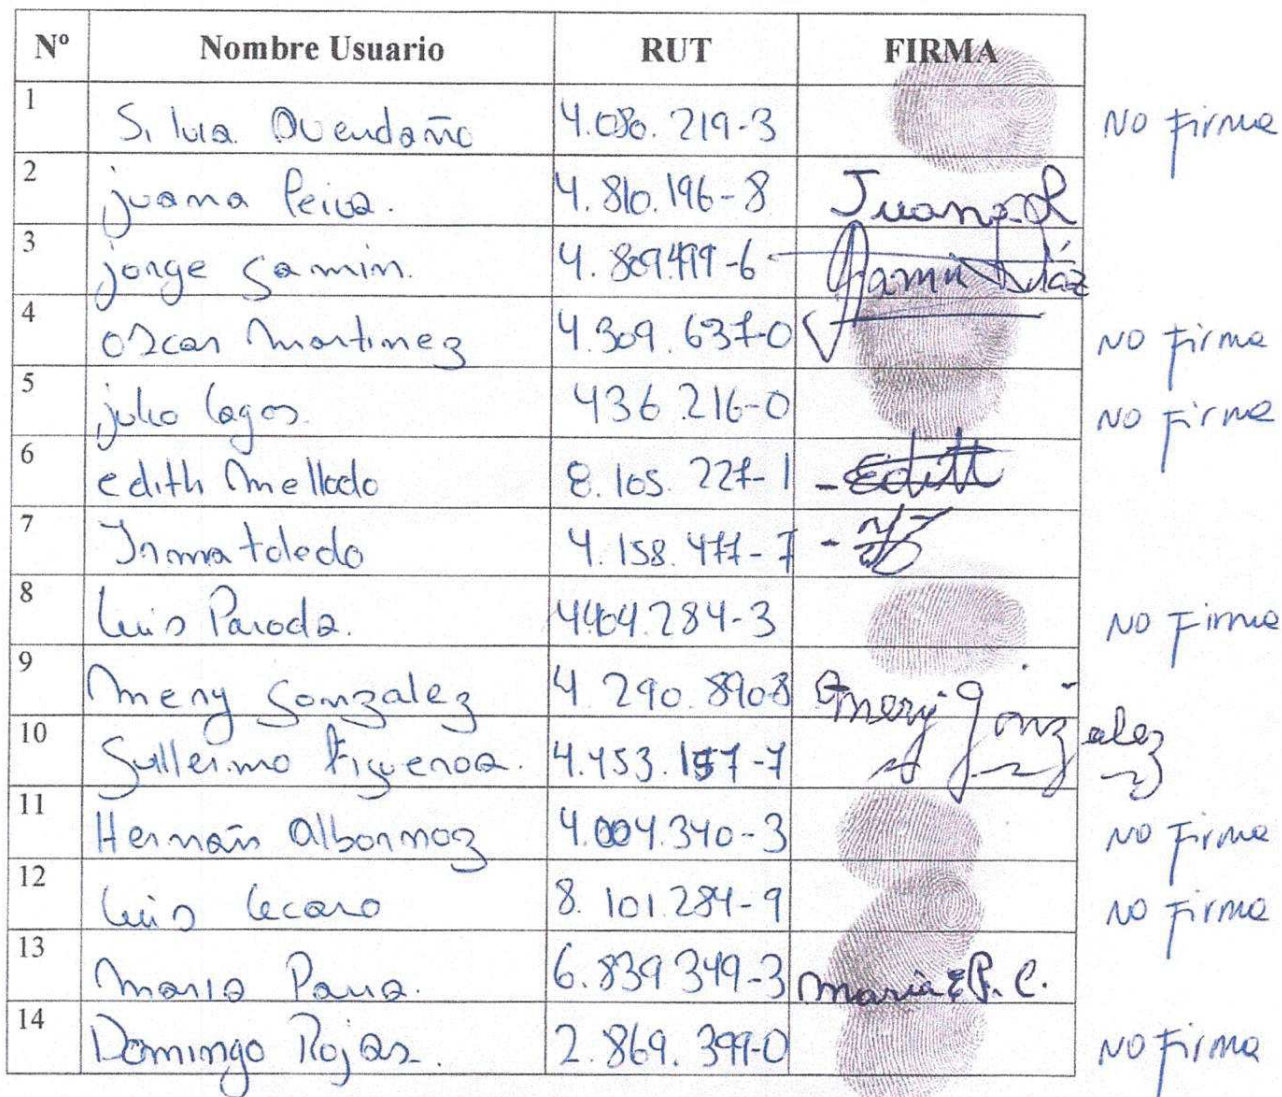 Nº Nombre Usuario RUT FIRMA
1 Silvia Avendaño 4.080.219-3 No Firma
2 juana Leiva. 4.810.196-8 Juana L
3 jorge Gamin. 4.809.499-6 Gamin Díaz
4 oscar Martinez 4.309.637-0 No Firma
5 julio lagos. 436.216-0 No Firma
6 edith Mellado 8.105.227-1 - Edith
7 Irma toledo 4.158.477-7
8 Luis Parada. 4404.284-3 No Firma
9 Mery Gonzalez 4.290.890-8 Mery González
10 Guillermo Figueroa. 4.453.157-7
11 Hernán Albornoz 4.004.340-3 No Firma
12 Luis Lecaro 8.101.284-9 No Firma
13 Maria Parra. 6.839.349-3 Maria E P. C.
14 Domingo Rojas. 2.869.399-0 No Firma